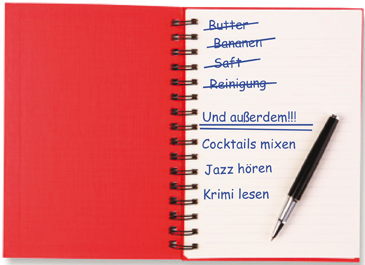 Butter
Bananen
Saft
Reinigung
Und außerdem!!!
Cocktails mixen
Jazz hören
Krimi lesen